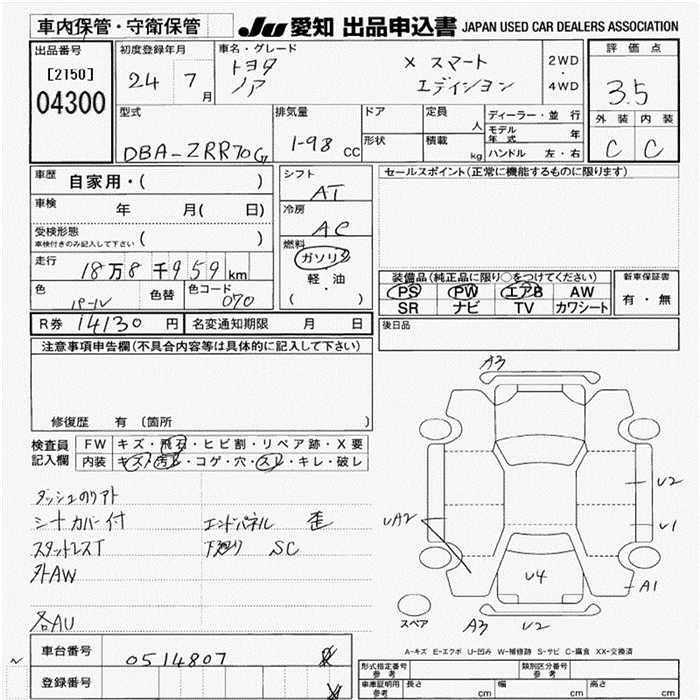 車内保管・守衛保管
JU 愛知 出品申込書 JAPAN USED CAR DEALERS ASSOCIATION
出品番号
[2150]
04300
初度登録年月
24 7月
車名・グレード
トヨタ X スマート
ノア エディション
2WD
・
4WD
評価点
3.5
外装 内装
C C
型式
DBA-ZRR70G
排気量
1-98 CC
ドア
形状
定員 人
積載 kg
ディーラー・並行
モデル年式 年
ハンドル 左・右
車歴 自家用・( )
車検 年 月( 日)
受検形態
車検付きのみ記入して下さい ( )
走行 18万8千959km
色 パール 色替 色コード 070
R券 14130 円 名変通知期限 月 日
シフト AT
冷房 AC
燃料
ガソリン
・
軽・油
( )
セールスポイント(正常に機能するものに限ります)
装備品(純正品に限り○をつけてください)
PS PW エアB AW
SR ナビ TV カワシート
新車保証書
有・無
後日品
注意事項申告欄(不具合内容等は具体的に記入して下さい)
修復歴 有 〔箇所 〕
検査員記入欄
FW キズ・飛石・ヒビ割・リペア跡・X要
内装 キズ・汚れ・コゲ・穴・スレ・キレ・破レ
ダッシュのリアト
シートカバー付 エンドパネル 歪
スタッドレスT 下廻り SC
外AW
各AU
車台番号 0514807
登録番号
A3
UA2
U2
U1
U4
A1
A3 U2
スペア
A-キズ E-エクボ U-凹み W-補修跡 S-サビ C-腐食 XX-交換済
形式指定番号 参考
類別区分番号 参考
車庫証明用 参考 長さ cm 幅 cm 高さ cm